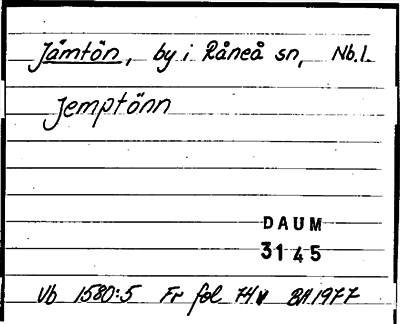 Jämtön, by i Råneå sn, Nb.l.
Jemptönn
DAUM
3145
Vb 1580:5 Fr fol 74v 1977